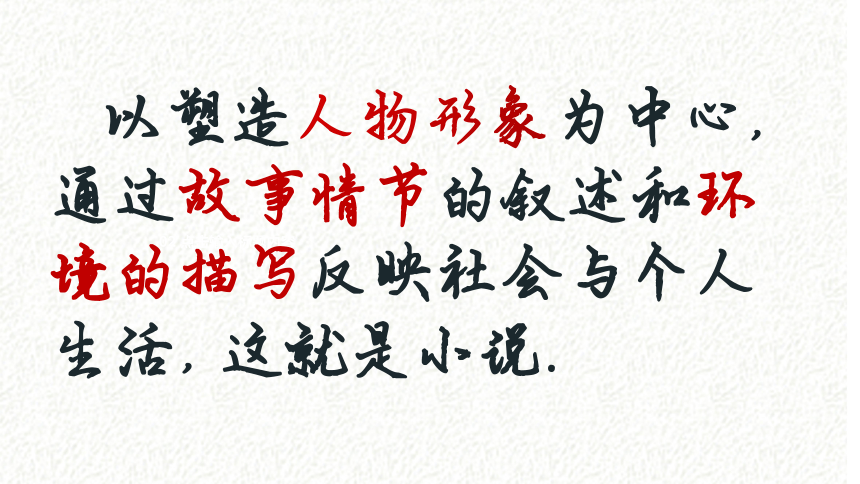 以塑造人物形象为中心,
通过故事情节的叙述和环
境的描写反映社会与个人
生活,这就是小说.